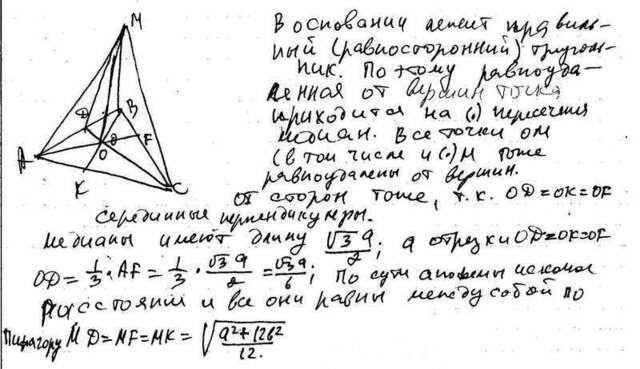 M
В основании лежит правиль-
ный (равносторонний) треуголь-
ник. Поэтому равноуда-
ленная от вершин точка
приходится на (.) пересечения
медиан. Все точки ОМ
(в том числе и (.) М тоже
равноудалены от вершин.
от сторон тоже, т.к. OD=OK=OF
серединные перпендикуляры.
D
B
F
A
O
K
C
Медианы имеют длину √3a/2; а отрезки OD=OK=OF
OD = 1/3 · AF = 1/3 · √3a/2 = √3a/6; По сути
расстояния и все они равны между собой по
Пифагору MD=MF=MK= √(a²+12b²)/12.